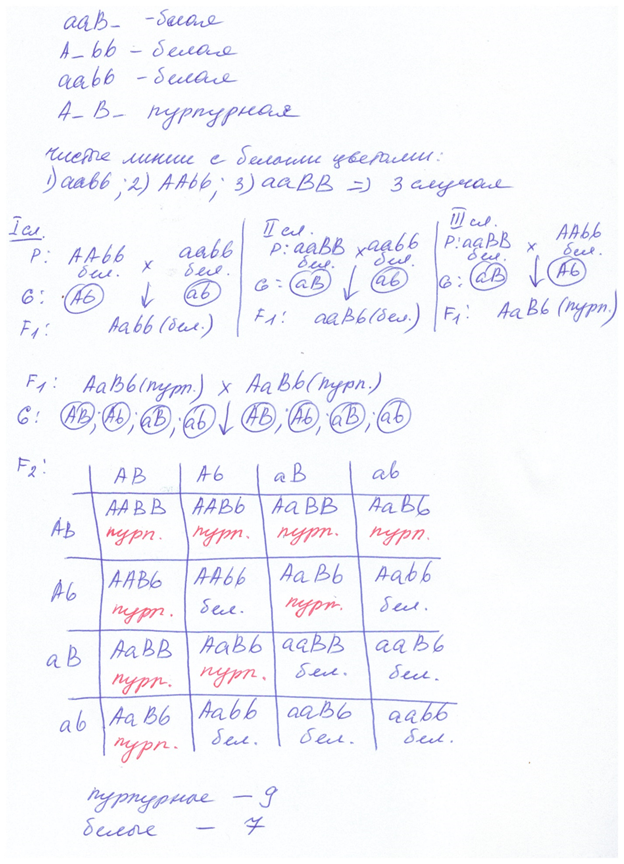 aaB_ - белая
A_bb - белая
aabb - белая
A_B_ пурпурная
Чистые линии с белыми цветами:
1) aabb; 2) AAbb; 3) aaBB => 3 случая
I сл.
P: AAbb x aabb
бел. бел.
G: Ab ↓ ab
F1: Aabb (бел.)
II сл.
P: aaBB x aabb
бел. бел.
G: aB ↓ ab
F1: aaBb (бел.)
III сл.
P: aaBB x AAbb
бел. бел.
G: aB ↓ Ab
F1: AaBb (пурп.)
F1: AaBb (пурп.) x AaBb (пурп.)
G: AB; Ab; aB; ab ↓ AB; Ab; aB; ab
F2:
AB Ab aB ab
AB AABB AABb AaBB AaBb
пурп. пурп. пурп. пурп.
Ab AABb AAbb AaBb Aabb
пурп. бел. пурп. бел.
aB AaBB AaBb aaBB aaBb
пурп. пурп. бел. бел.
ab AaBb Aabb aaBb aabb
пурп. бел. бел. бел.
пурпурное - 9
белые - 7